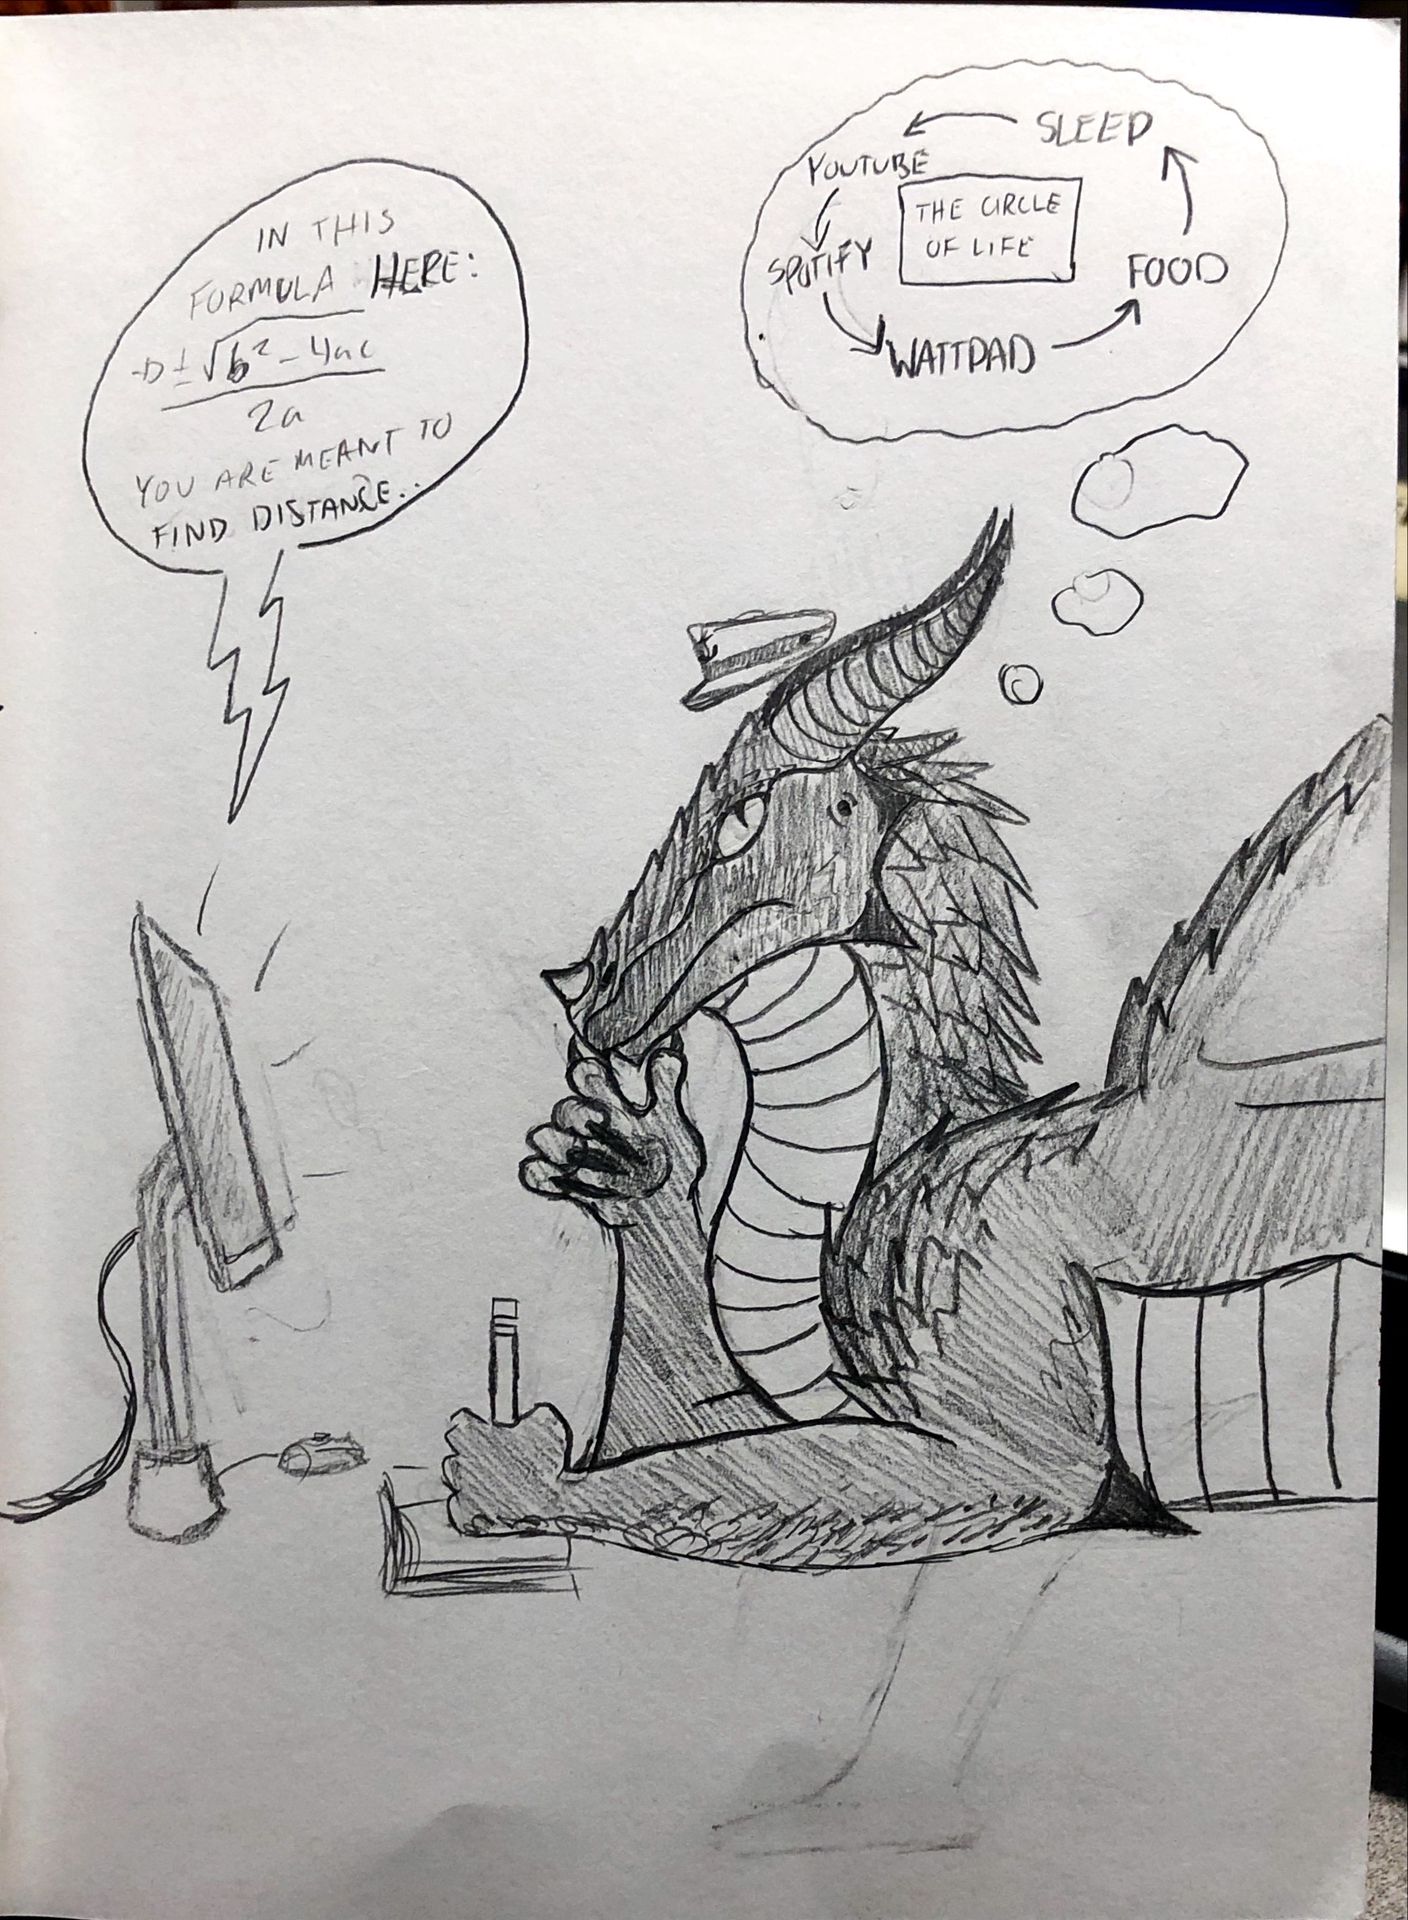 IN THIS
FORMULA HERE:
-b ± √b² - 4ac
2a
YOU ARE MEANT TO
FIND DISTANCE...
SLEEP
YOUTUBE
SPOTIFY
WATTPAD
FOOD
THE CIRCLE
OF LIFE